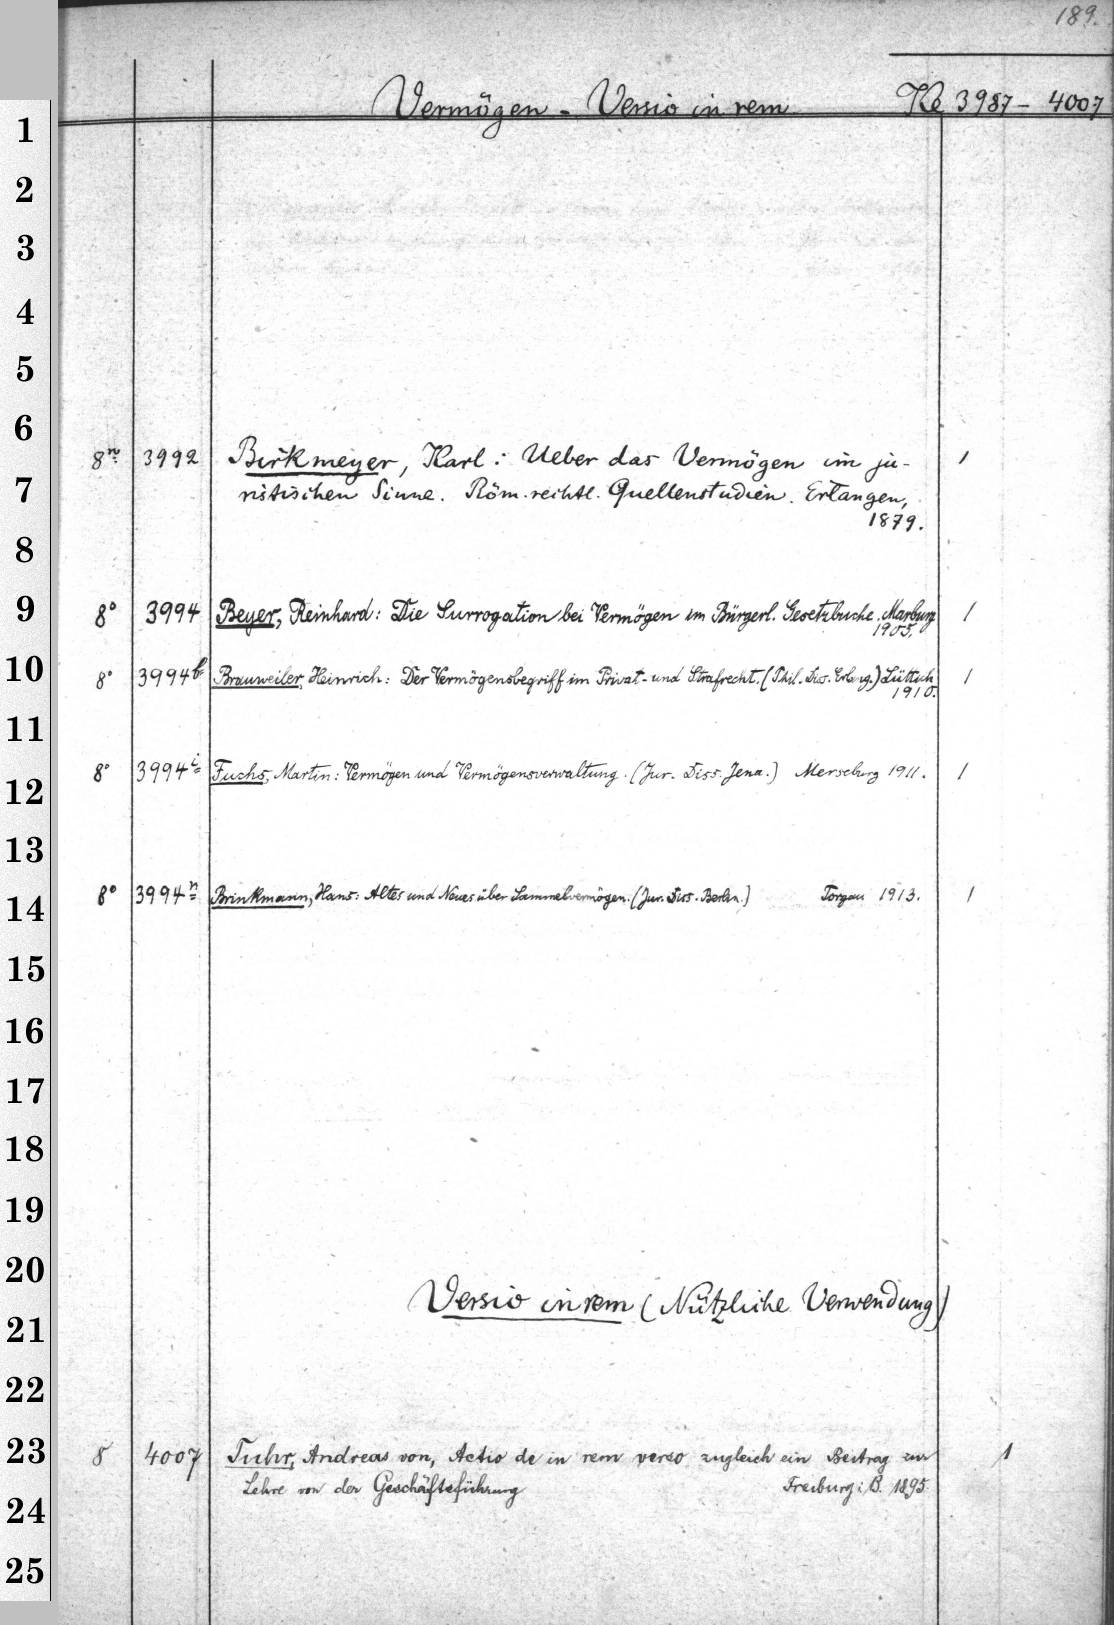 189.
Vermögen - Versio in rem Ke 3987 - 4007
1
2
3
4
5
6
8n. 3992 Birkmeyer, Karl: Ueber das Vermögen im ju-
7 ristischen Sinne. Röm. rechtl. Quellenstudien. Erlangen,
1879.
8
9 8° 3994 Beyer, Reinhard: Die Surrogation bei Vermögen im Bürgerl. Gesetzbuche. Marburg
1905.
10 8° 3994f Brauweiler, Heinrich: Der Vermögensbegriff im Privat- und Strafrecht. (Phil. Diss. Erlang.) Lüttich
1910.
11
12 8° 3994i Fuchs, Martin: Vermögen und Vermögensverwaltung. (Jur. Diss. Jena.) Merseburg 1911. 1
13
14 8° 3994n Brinkmann, Hans: Altes und Neues über Sammelvermögen. (Jur. Diss. Berlin.) Torgau 1913. 1
15
16
17
18
19
20
Versio in rem (Nützliche Verwendung)
21
22
23 8 4007 Tuhr, Andreas von, Actio de in rem verso zugleich ein Beitrag zur 1
Lehre von der Geschäftsführung Freiburg i. B. 1895
24
25